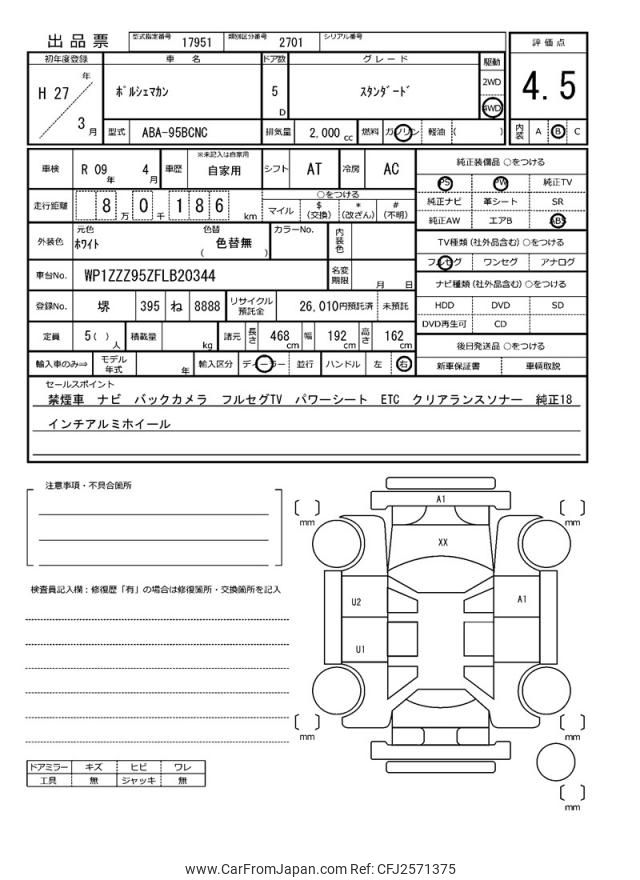 出品票 型式指定番号 17951 類別区分番号 2701 シリアル番号
評価点
4.5
内装 A B C
初年度登録 車名 ドア数 グレード 駆動
H 27 年 3 月
ポルシェマカン 5 D スタンダード 2WD 4WD
型式 ABA-95BCNC 排気量 2,000 cc 燃料 ガソリン 軽油 ( )
車検 R 09 年 4 月 車歴 ※未記入は自家用 自家用 シフト AT 冷房 AC
走行距離 8 万 0 千 186 km ○をつける
マイル $ (交換) * (改ざん) # (不明)
外装色 元色 ホワイト 色替 色替無 ( ) カラーNo. 内装色
車台No. WP1ZZZ95ZFLB20344 名変期限 月 日
登録No. 堺 395 ね 8888 リサイクル預託金 26,010円預託済 未預託
定員 5( ) 人 積載量 kg 諸元 長さ 468 cm 幅 192 cm 高さ 162 cm
輸入車のみ⇒ モデル年式 年 輸入区分 ディーラー 並行 ハンドル 左 右
純正装備品 ○をつける
PS PW 純正TV
純正ナビ 革シート SR
純正AW エアB ABS
TV種類 (社外品含む) ○をつける
フルセグ ワンセグ アナログ
ナビ種類 (社外品含む) ○をつける
HDD DVD SD
DVD再生可 CD
後日発送品 ○をつける
新車保証書 車輌取説
セールスポイント
禁煙車 ナビ バックカメラ フルセグTV パワーシート ETC クリアランスソナー 純正18
インチアルミホイール
注意事項・不具合箇所
検査員記入欄：修復歴「有」の場合は修復箇所・交換箇所を記入
ドアミラー キズ ヒビ ワレ
工具 無 ジャッキ 無
A1
[ ] mm [ ] mm
XX
U2 A1
U1
[ ] mm [ ] mm
[ ] mm
www.CarFromJapan.com Ref: CFJ2571375